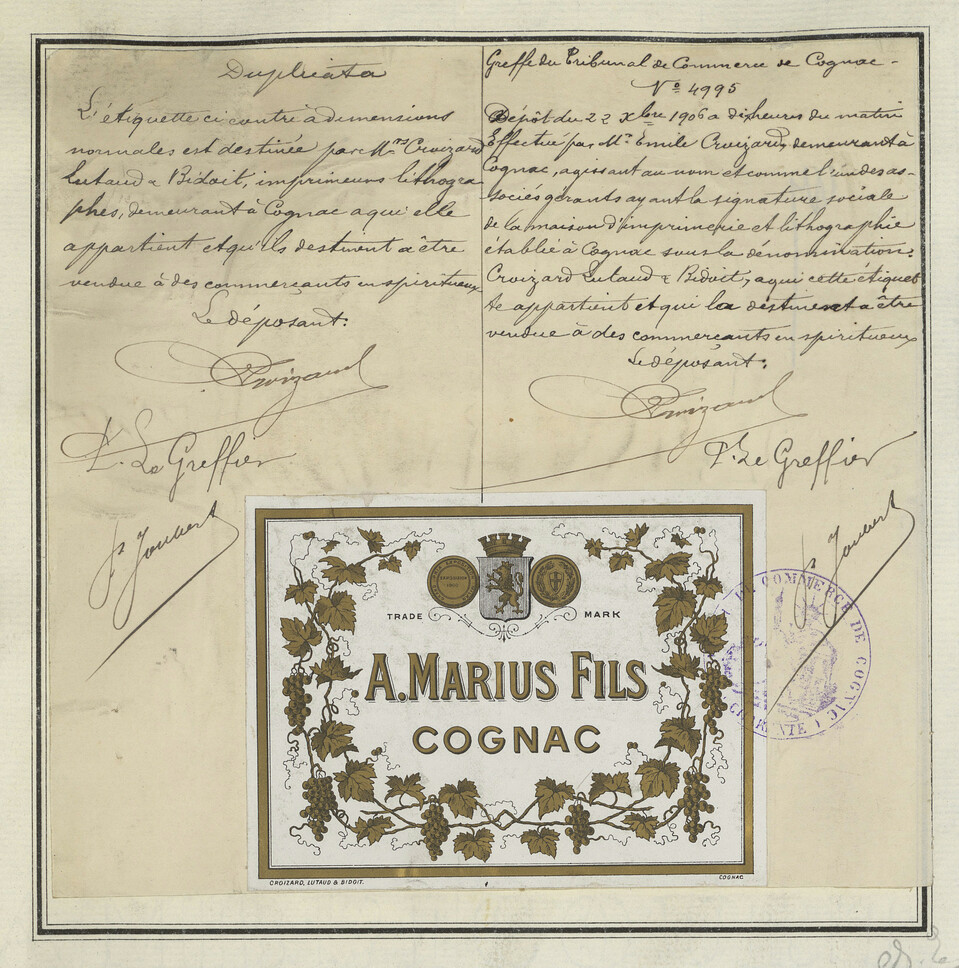 Duplicata
L'étiquette ci contre à dimensions
normales est destinée par Mrs Croizard
Lutaud & Bidoit, imprimeurs lithogra
phes, demeurant à Cognac a qui elle
appartient et qu'ils destinent a être
vendue à des commerçants en spiritueux
Le déposant:
Croizard
P. Le Greffier
Joubert
Greffe du Tribunal de Commerce de Cognac -
No 4995
Dépôt du 22 Xbre 1906 a dix heures du matin
Effectué par Mr Emile Croizard, demeurant à
Cognac, agissant au nom et comme l'un des as-
sociés gérants ayant la signature sociale
de la maison d'imprimerie et lithographie
établie à Cognac sous la dénomination:
Croizard Lutaud & Bidoit, a qui cette etiquet
te appartient et qui la destinent a être
vendue à des commerçants en spiritueux
Le déposant:
Croizard
P. Le Greffier
Joubert
TRADE MARK
A. MARIUS FILS
COGNAC
CROIZARD, LUTAUD & BIDOIT.
COGNAC
COMMERCE DE COGNAC